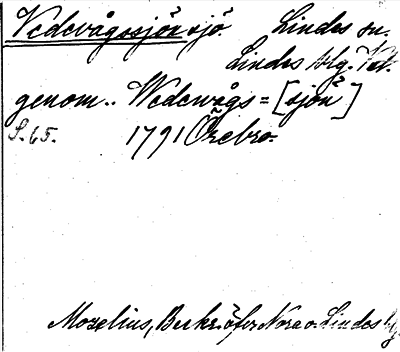 Vedevågssjön sjö Lindes sn.
Lindes blg. Vstl.
genom.. Wedewågs=[sjön]
S. 65. 1791 Örebro.
Mozelius, Beskr. öfver Nora o. Lindes bg.